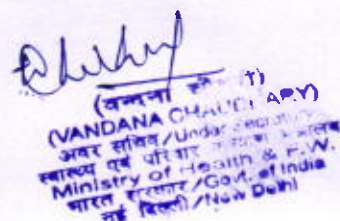 (वन्दना
(VANDANA CHAUDHARY)
अवर सचिव/Under Secretary
स्वास्थ्य एवं परिवार
Ministry of Health & F.W.
भारत सरकार/Govt. of India
नई दिल्ली/New Delhi